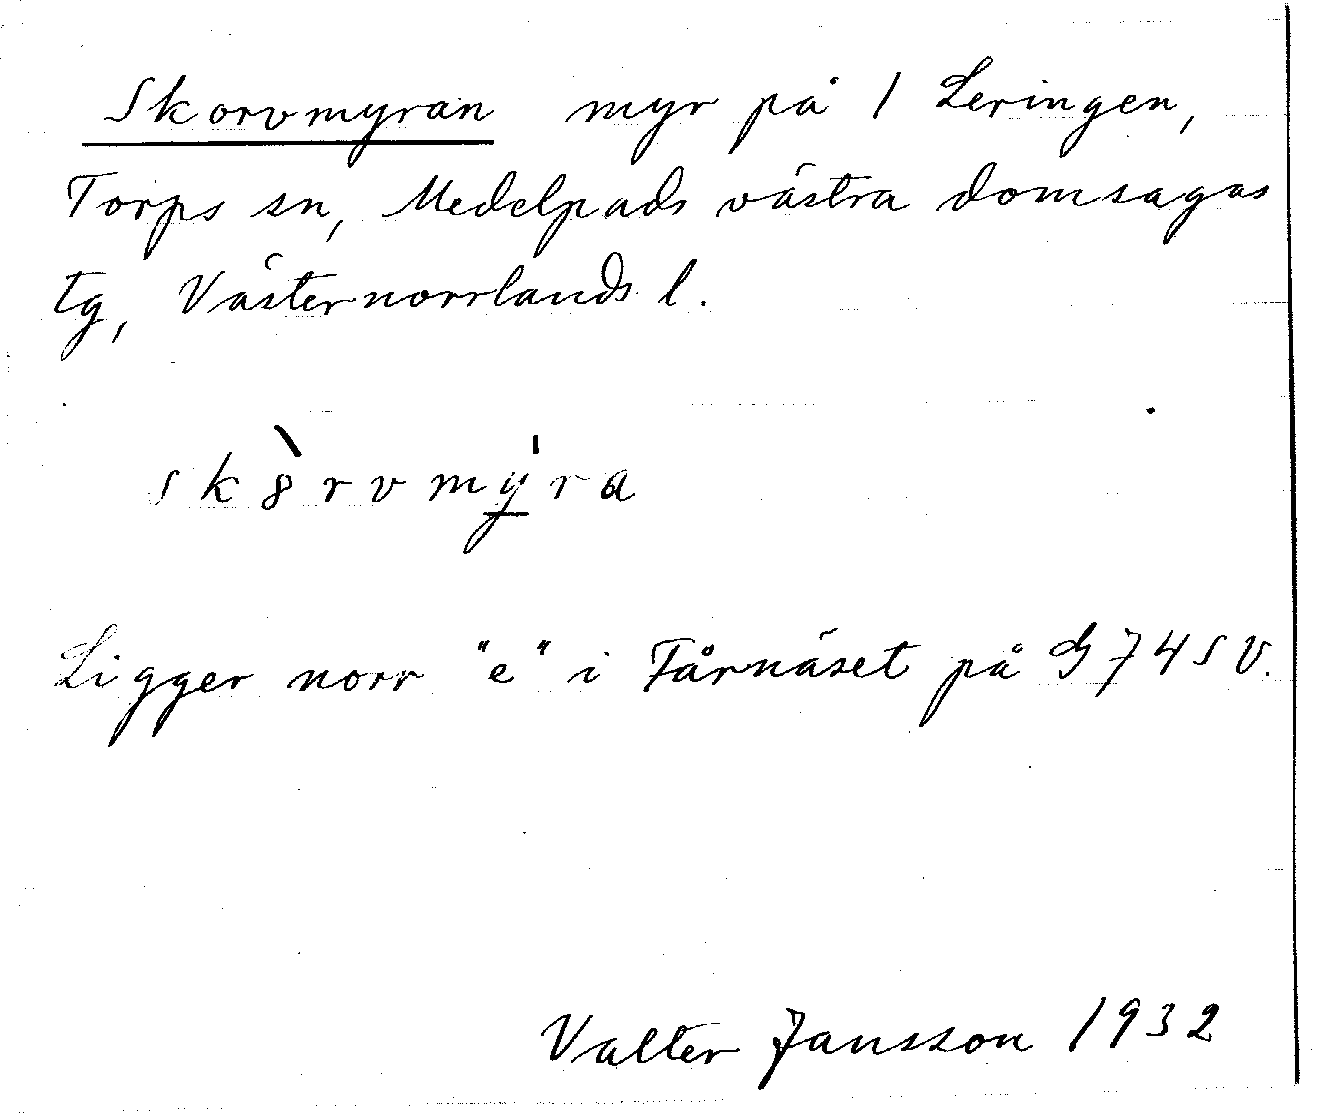 Skorvmyran myr på 1 Leringen,
Torps sn, Medelpads västra domsagas
tg, Västernorrlands l.
sk8̀rvmy̍ra
Ligger norr "e" i Fårnäset på G 74 SV.
Valter Jansson 1932